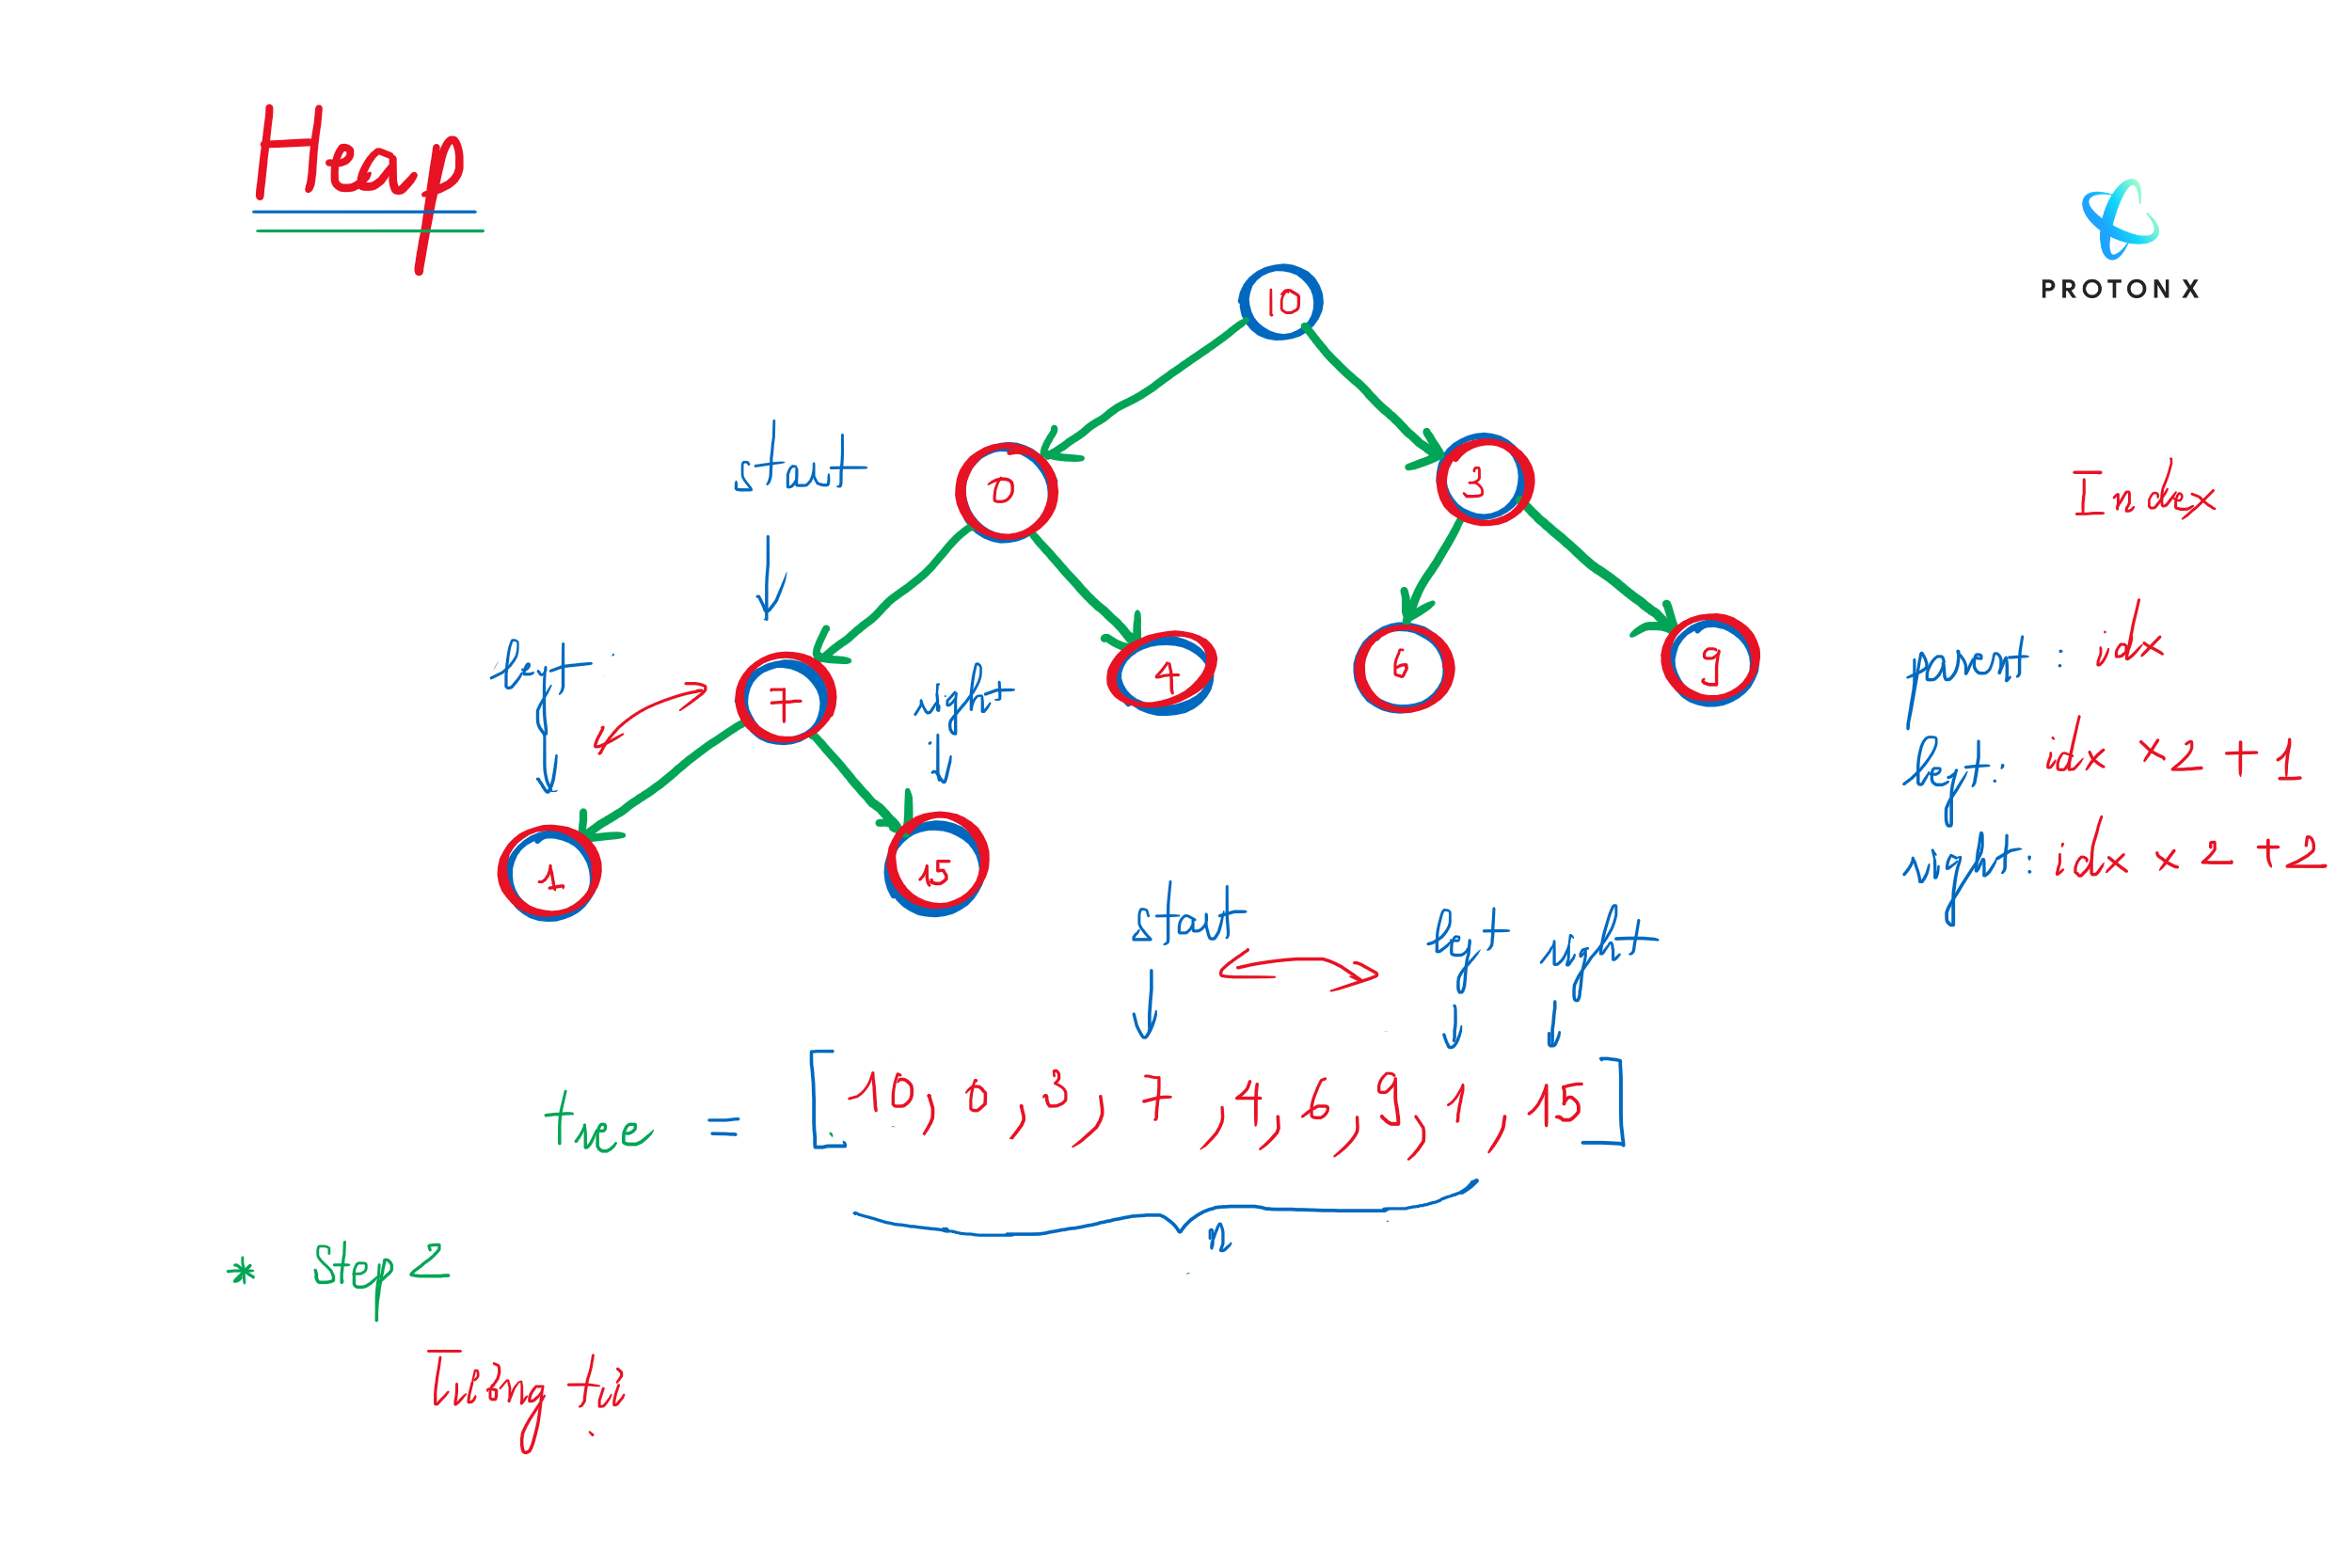 Heap
PROTON X
10
0
3
start
7
4
6
9
left
right
1
15
Index
parent : idx
left : idx × 2 + 1
right : idx × 2 + 2
start
left
right
tree = [10, 0, 3, 7, 4, 6, 9, 1, 15]
n
* Step 2
Tương tự